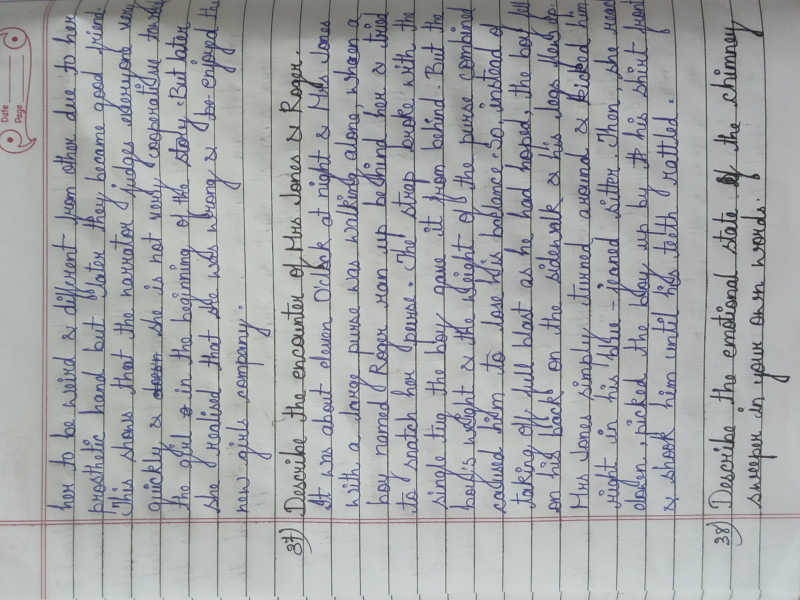 Date
Page
her to be weird & different from other due to her
prosthetic hand but later they became good friend
This shows that the narrator judges everyone very
quickly & she is not very cooperative towards
the girl in the beginning of the story. But later
she realised that she was wrong & enjoyed the
new girls company.
37) Describe the encounter of Mrs Jones & Roger.
It was about eleven O'clock at night & Mrs Jones
with a large purse was walking alone, when a
boy named Roger ran up behind her & tried
to snatch her purse. The strap broke with the
single tug the boy gave it from behind. But the
boy's weight & the weight of the purse combined
caused him to lose his balance. So, instead of
taking off full blast as he had hoped, the boy fell
on his back on the sidewalk & his legs flew up.
Mrs Jones simply turned around & kicked him
right in his blue-jeaned sitter. Then she
down, picked the boy up by his shirt front
& shook him until his teeth rattled.
38) Describe the emotional state of the chimney
sweeper in your own words.